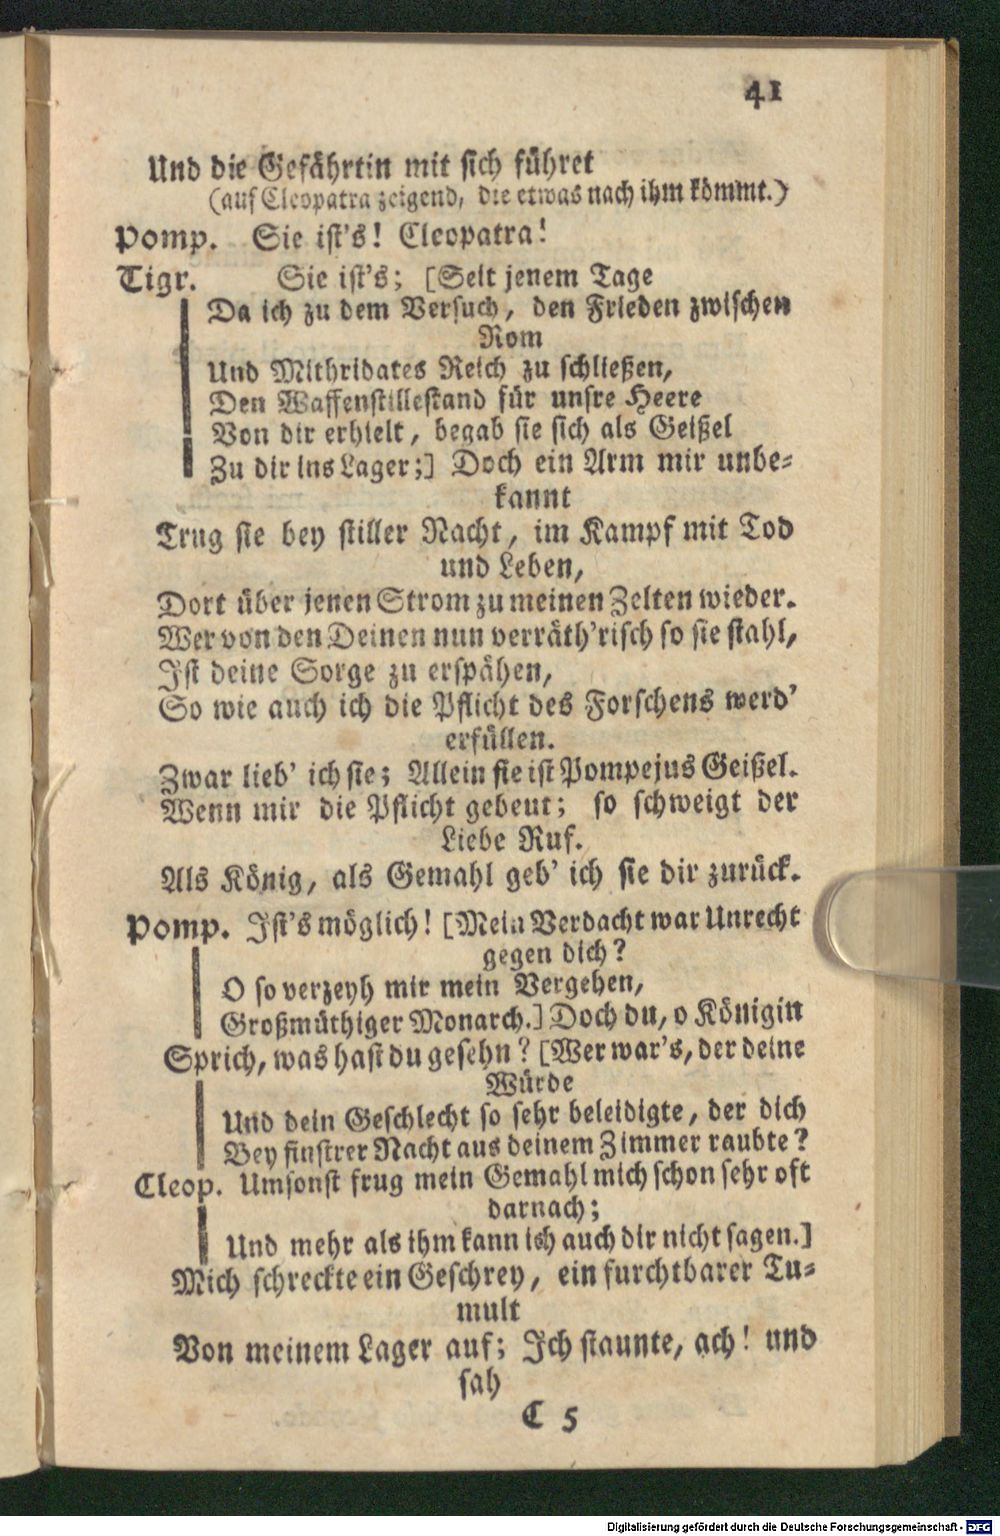 41
Und die Gefährtin mit sich führet
(auf Cleopatra zeigend, die etwas nach ihm kömmt.)
Pomp. Sie ist's! Cleopatra!
Tigr. Sie ist's; [Seit jenem Tage
Da ich zu dem Versuch, den Frieden zwischen
Rom
Und Mithridates Reich zu schließen,
Den Waffenstillestand für unsre Heere
Von dir erhielt, begab sie sich als Geißel
Zu dir ins Lager;] Doch ein Arm mir unbe-
kannt
Trug sie bey stiller Nacht, im Kampf mit Tod
und Leben,
Dort über jenen Strom zu meinen Zelten wieder.
Wer von den Deinen nun verräth'risch so sie stahl,
Ist deine Sorge zu erspähen,
So wie auch ich die Pflicht des Forschens werd'
erfüllen.
Zwar lieb' ich sie; Allein sie ist Pompejus Geißel.
Wenn mir die Pflicht gebeut; so schweigt der
Liebe Ruf.
Als König, als Gemahl geb' ich sie dir zurück.
Pomp. Ist's möglich! [Mein Verdacht war Unrecht
gegen dich?
O so verzeyh mir mein Vergehen,
Großmüthiger Monarch.] Doch du, o Königin
Sprich, was hast du gesehn? [Wer war's, der deine
Würde
Und dein Geschlecht so sehr beleidigte, der dich
Bey finstrer Nacht aus deinem Zimmer raubte?
Cleop. Umsonst frug mein Gemahl mich schon sehr oft
darnach;
Und mehr als ihm kann ich auch dir nicht sagen.]
Mich schreckte ein Geschrey, ein furchtbarer Tu-
mult
Von meinem Lager auf; Ich staunte, ach! und
sah
C 5
Digitalisierung gefördert durch die Deutsche Forschungsgemeinschaft - DFG